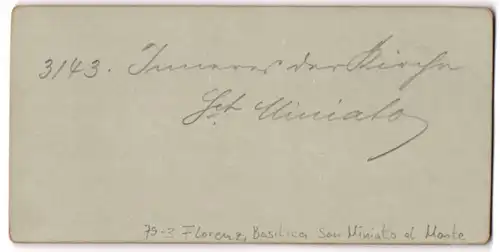 3143. Inneres der Kirche
Sct Miniato
79-3 Florenz, Basilica San Miniato al Monte